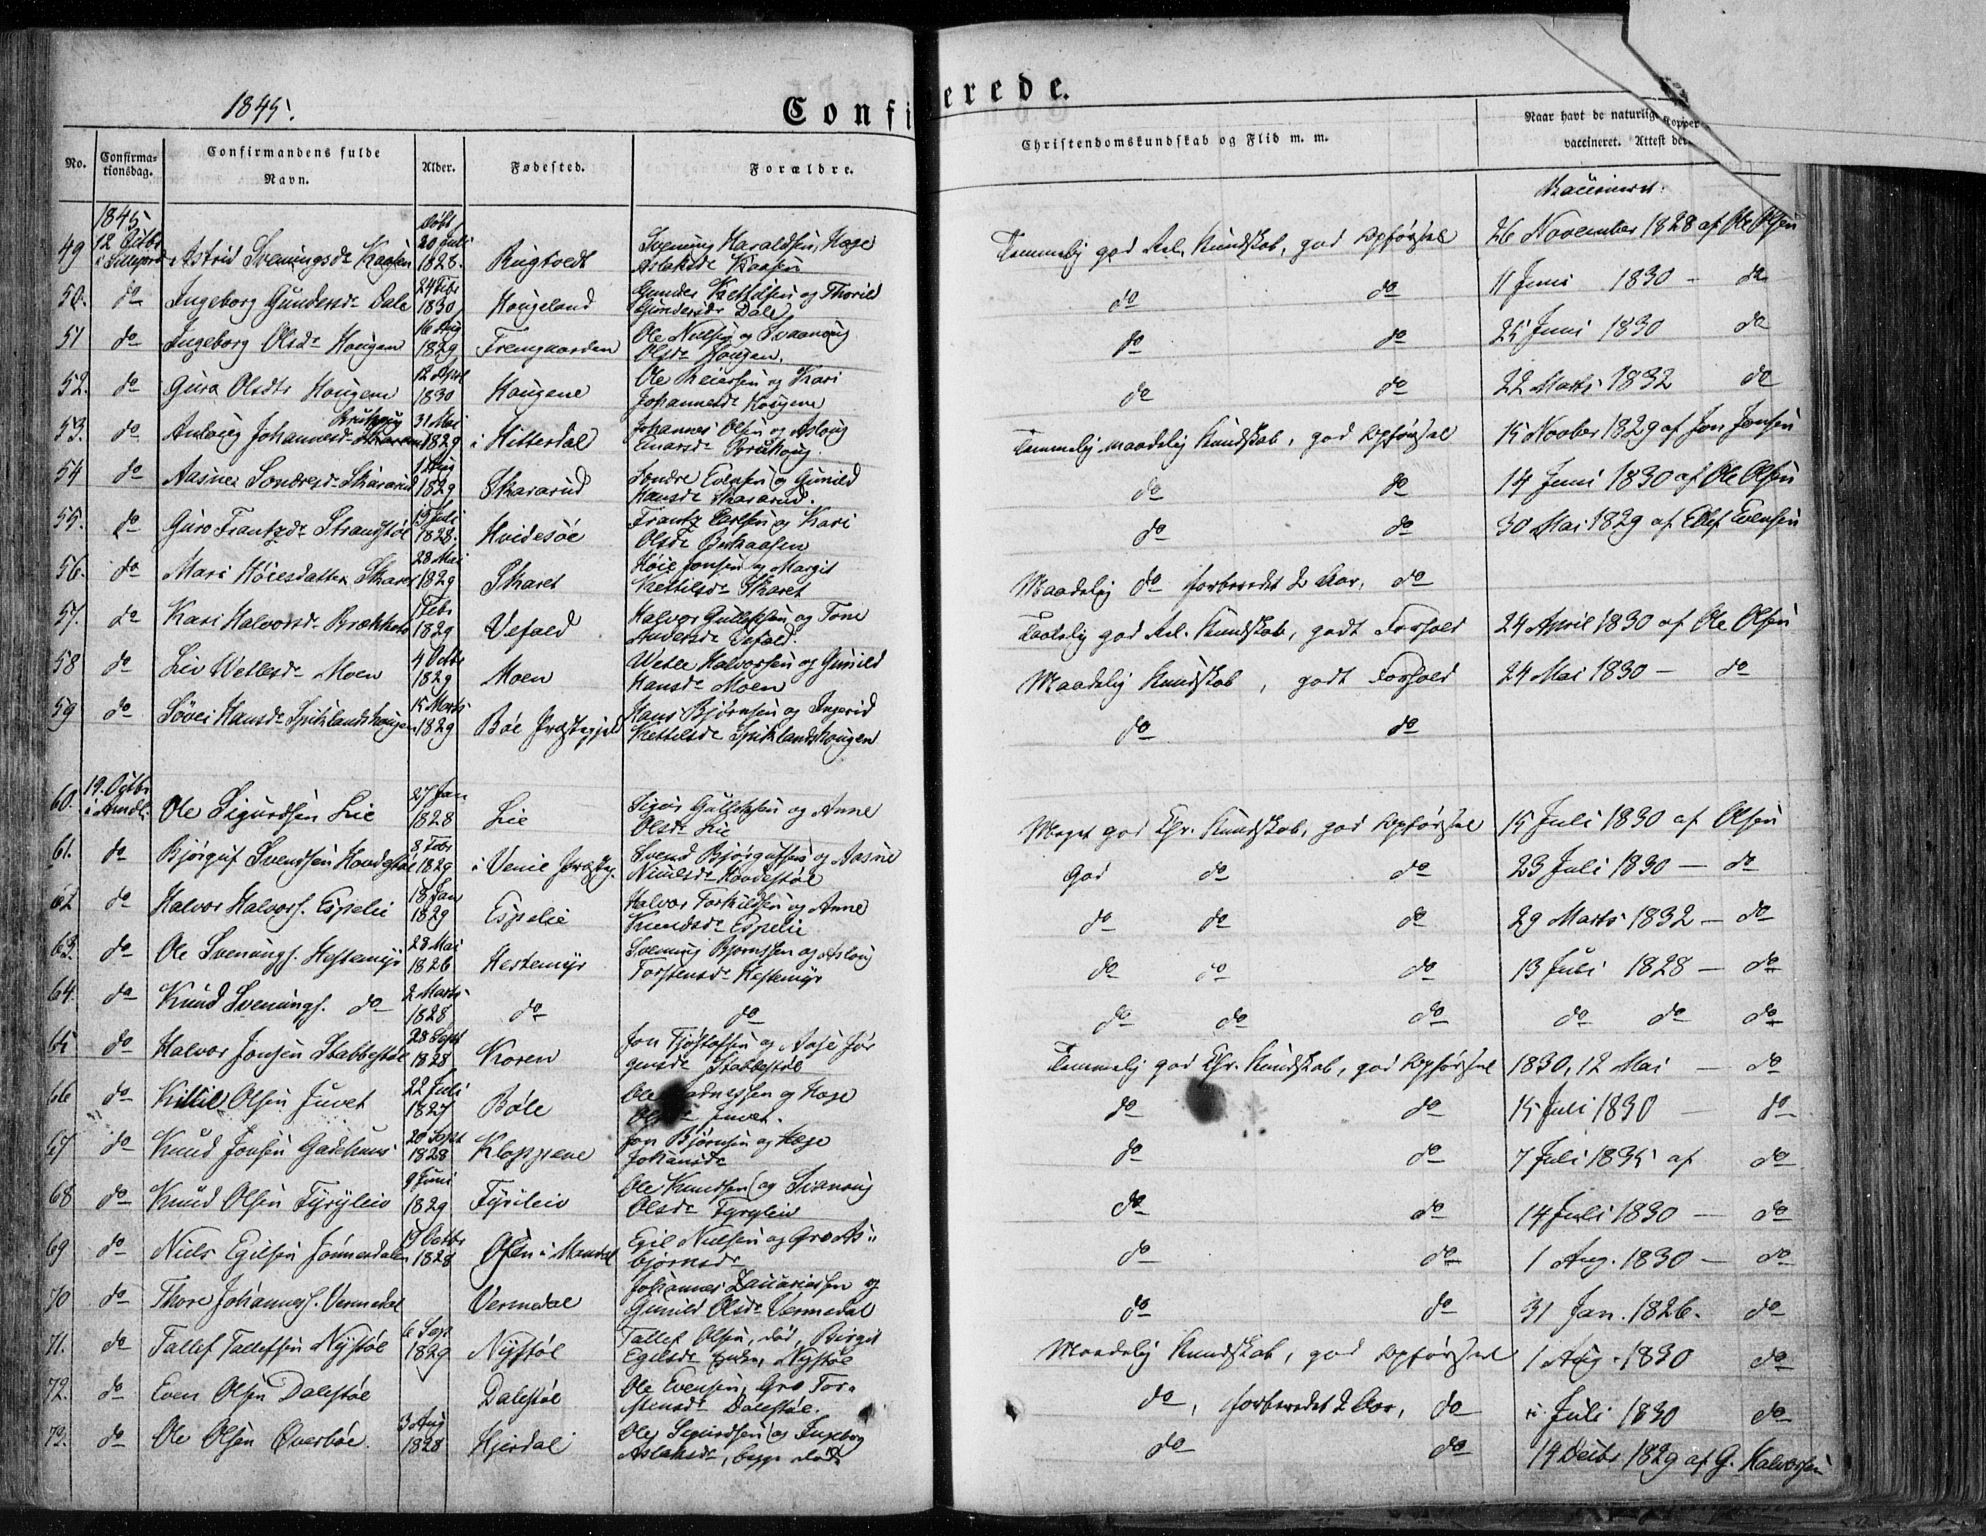 1845.
Confi erede.
No.
Confirma-
tionsdag.
Confirmandens fulde
Navn.
Alder.
Fødested.
Forældre.
Christendomskundskab og Flid m. m.
Naar havt de naturlig Kopper
vaccineret. Attest der
1845 døbt Vaccineret.
49 12 Octbr i Astrid Sveningsdr Kaasen 20 Juli 1828. Rugtvedt Svening Haraldsen, Hæge Aslaksdr Kaasen Temmelig god Rel. Kundskab, god Opførsel 26 November 1828 af Ole Olsen
50. do Ingeborg Gundersdr Dale 24 Febr 1830 Hougeland Gunder Kettilsen og Thorild Gundersdr Dale do do 11 Juni 1830 - do
51 do Ingeborg Olsdr Hougen 16 Aug 1829 Fremgaarden Ole Nielsen og Svanoug Olsdr Hougen. do do 25 Juni 1830 do
52. do Guro Olsdtr Hougene 12 April 1830 Hougene Ole Reiersen og Kari Johannesdr Hougene do do 22 Marts 1832 do
53. do Anlaug Johannesdr Brukhoug 31 Mai 1829 i Hitterdal Johannes Olsen og Asloug Einarsdr Brukhoug. Temmelig maadelig Kundskab, god Opførsel 15 Novber 1829 af Jon Jonsen
54 do Aasne Sondresdr Skararud 1 Aug 1829 Skararud Sondre Evensen og Gunild Hansdr Skararud. do do 14 Juni 1830 af Ole Olsen
55. do Guro Frantzdr Strandstøl 19 Juli 1828. Hvidesøe Frantz Carlsen og Kari Olsdr do do 30 Mai 1829 af Ellef Evensen
56. do Mari Høiesdatter Skaret 28 Mai 1829 Skaret Høie Jonsen og Margit Kettilsdr Skaret Maadelig do forberedt 2 Aar, do
57. do Kari Halvorsdr 1 Febr 1829 Vefald Halvor Gulleksen og Tone Andersdr Vefald. god Rel. Kundskab, godt Forhold 24 April 1830 af Ole Olsen
58 do Liv Wetlesdr Moen 4 Octbr 1829 Moen Wetle Halvorsen og Gunild Hansdr Moen Maadelig Kundskab, godt Forhold 24 Mai 1830 - do
59 do Søvei Hansdr Spiklandshougen 15 Marts 1829 Bøe Præstegjeld Hans Bjørnsen og Ingerid Kettilsdr Spiklandshougen do do
60. 19. Octbr i Ole Sigurdsen Lie 27 Jan 1828 Lie Gulleksen og Anne Olsdr Lie Meget god Chr. Kundskab, god Opførsel 15 Juli 1830 af Olsen
61. do Bjørguf Svendsen Hovdestøl 8 Febr 1829 i Vinie Præstg. Svend Bjørgufsen og Aasne Nielsdr Hovdestøl God do do 23 Juli 1830 - do
62 do Halvor Halvors. Espelie 18 Jan 1829 Espelie Halvor Torkildsen og Anne Knudsdr Espelie do do do 29 Marts 1832 - do
63. do Ole Svenings. Hestemyr 28 Mai 1826 Hestemyr Svening Bjørnsen og Asloug Torstensdr Hestemyr do do do 13 Juli 1828 - do
64. do Knud Svenings. do 2 Marts 1828 do do do do do do do do
65 do Halvor Jonsen Stabbestøl 28 Sept 1828 Koren Jon Tjøstofsen og Aase Jørgensdr Stabbestøl Temmelig god Chr. Kundskab, god Opførsel 1830, 12 Mai - do
66 do Kittil Olsen Juvet 22 Juli 1827 Bøle Ole og Hæge Juvet. do do 15 Juli 1830 - do
67 do Knud Jonsen Gadehuus 20 Sept 1828 Kloppene Jon Bjørnsen og Hæge Johansdr do do 7 Juli 1835 af do
68 do Knud Olsen Tyryleiv 9 Juni 1829 Tyrileiv Ole Knudsen og Svanoug Olsdr Tyryleiv do do 14 Juli 1830 - do
69 do Niels Egilsen Jønnendalen Octbr 1828 Ofen i Mandal Egil Nielsen og Gro Asbjørnsdr do do 1 Aug. 1830 - do
70 do Thore Johannes. Vermedal Vermedal Johannes Zacariasen og Gunild Olsdr Vermedal do do 31 Jan. 1826. do
71. do Tallef Tallefsen Nystøl 6 Sept 1829 Nystøl Tallef Olsen, død, Birgit Egilsdr Enke, Nystøl Maadelig Kundskab, god Opførsel 1 Aug. 1830 do
72. do Even Olsen Dalestøl Dalestøl Ole Evensen, Gro Torstensdr Dalestøl. do, forberedt 2 Aar, do Juli 1830 do
73. do Ole Olsen Øverbøe. 3 Aug 1828 Hjerdal Ole Sigurdsen og Ingeborg Aslaksdr, begge døde do do 14 Decbr. 1829 af G. Halvorsen